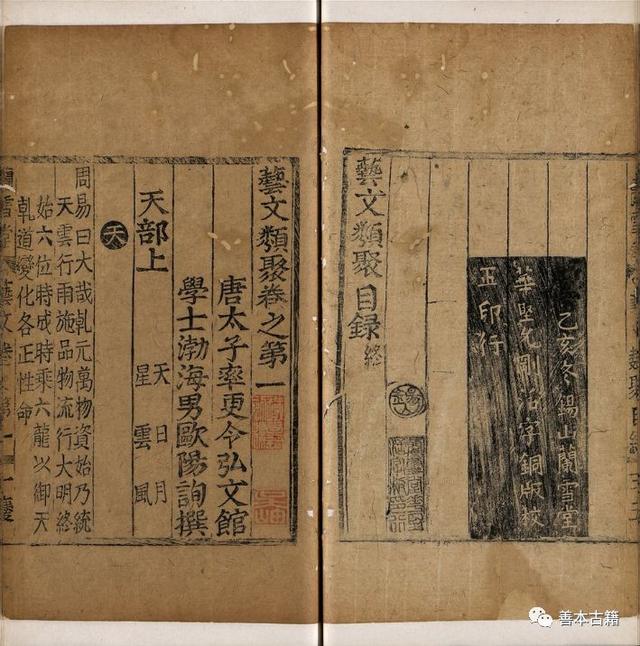 乙亥冬錫山蘭雪堂
華堅允剛活字銅版校
正印行
錫山
藝文類聚目録終
藝文類聚卷之第一
唐太子率更令弘文館
學士渤海男歐陽詢撰
天部上
天 日 月
星 雲 風
天
周易曰大哉乹元萬物資始乃統
天雲行雨施品物流行大明終
始六位時成時乘六龍以御天
乹道變化各正性命
善本古籍